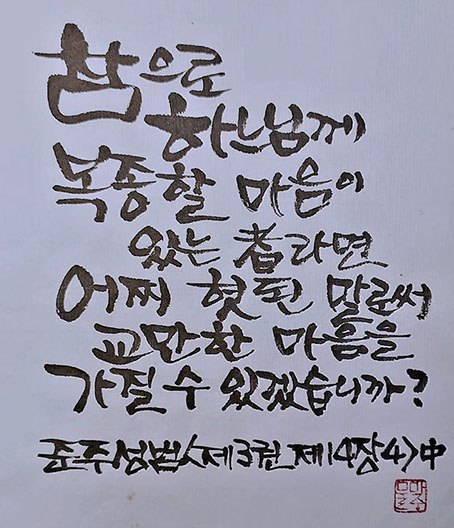 참으로
하느님께
복종할 마음이
있는 者라면
어찌 헛된 말로써
교만한 마음을
가질 수 있겠습니까?
준주성범<제3권 제14장4>中